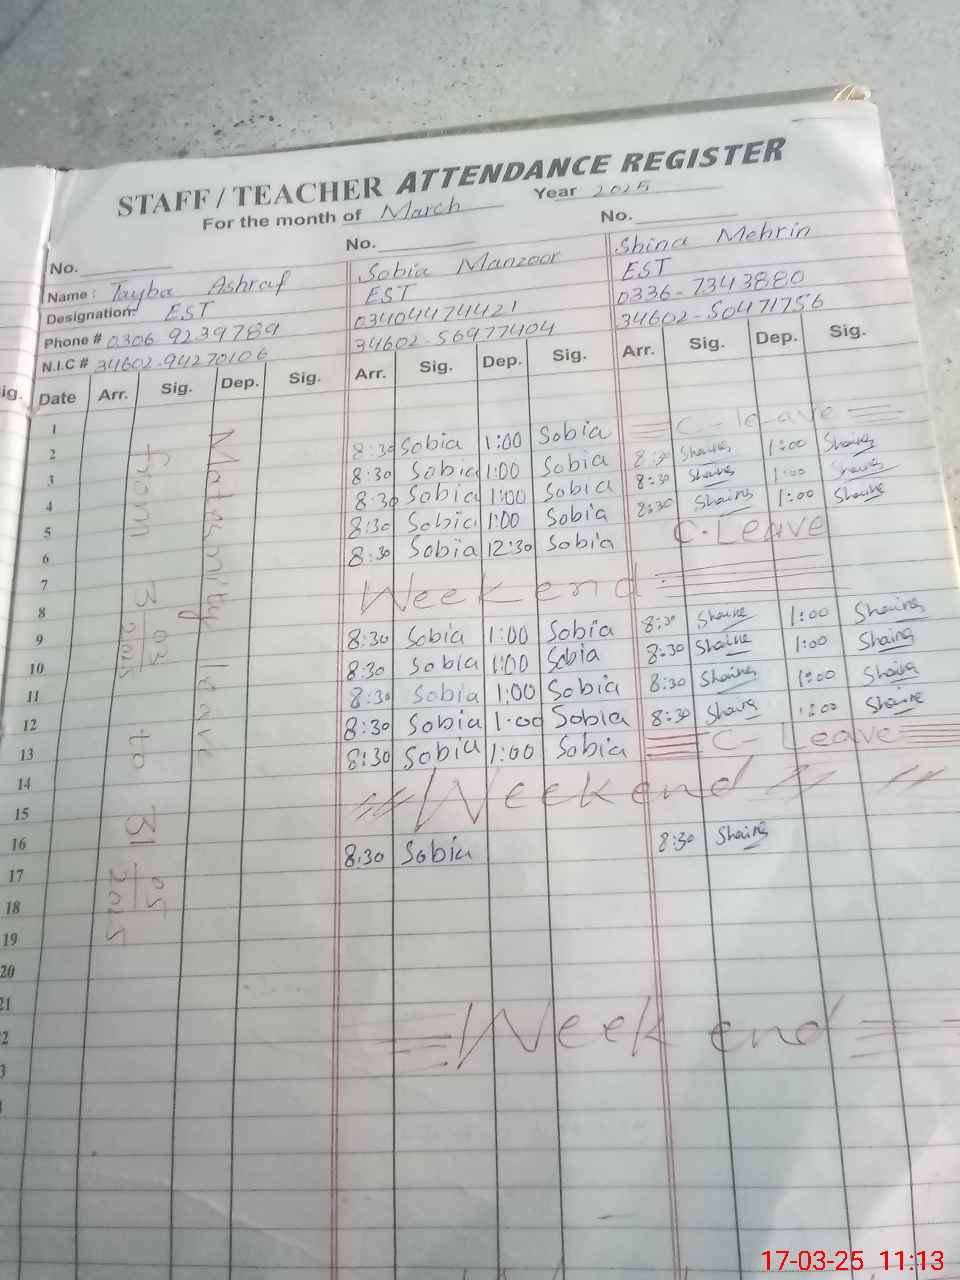 STAFF / TEACHER ATTENDANCE REGISTER
For the month of March Year 2025
No. No. No.
Name : Tayba Ashraf Sobia Manzoor Shina Mehrin
Designation: EST EST EST
Phone # 0306 9239789 03404474421 0336-7343880
N.I.C # 34602-94270106 34602-56977404 34602-50471756
ig. Date Arr. Sig. Dep. Sig. Arr. Sig. Dep. Sig. Arr. Sig. Dep. Sig.
Maternity leave
from 3 03 2025 to 31 05 2025
1
2 8:30 Sobia 1:00 Sobia C-leave
3 8:30 Sobia 1:00 Sobia 8:30 1:00
4 8:30 Sobia 1:00 Sobia 8:30 1:00
5 8:30 Sobia 1:00 Sobia 8:30 1:00
6 8:30 Sobia 12:30 Sobia C.Leave
7 Week end
8
9 8:30 Sobia 1:00 Sobia 8:30 1:00
10 8:30 Sobia 1:00 Sobia 8:30 1:00
11 8:30 Sobia 1:00 Sobia 8:30 1:00
12 8:30 Sobia 1:00 Sobia 8:30 1:00
13 8:30 Sobia 1:00 Sobia C- Leave
14 Week end
15
16 8:30 Sobia 8:30
17
18
19
20
21
2 Week end
3
17-03-25 11:13